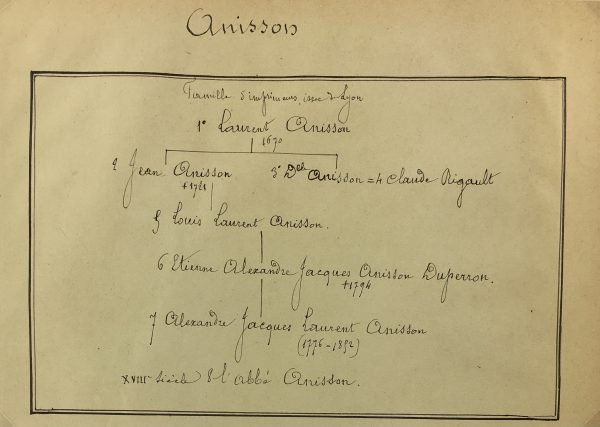 Anisson
Famille d'imprimeurs, issue de Lyon
1° Laurent Anisson
1670
2 Jean Anisson
3° Delle Anisson = 4 Claude Rigault
†1721
5 Louis Laurent Anisson.
6 Etienne Alexandre Jacques Anisson Duperron.
†1794
7 Alexandre Jacques Laurent Anisson
(1776-1852)
XVIIIme siècle 8 l'abbé Anisson.